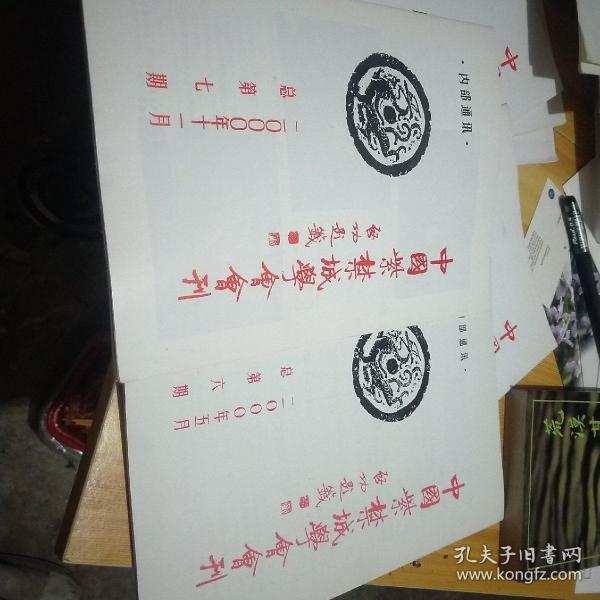 ·内部通讯·
总第七期
二〇〇〇年十一月
中國紫禁城學會會刊
启功題籤
部通讯·
总第六期
二〇〇〇年五月
中國紫禁城學會會刊
启功題籤
中
中
孔夫子旧书网
www.kongfz.com